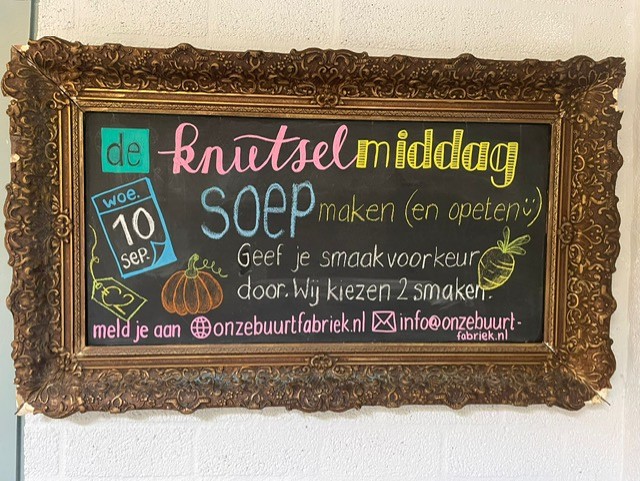 de knutselmiddag
woe.
10
sep.
SOEP maken (en opeten :))
Geef je smaakvoorkeur
door. Wij kiezen 2 smaken.
€2
meld je aan onzebuurtfabriek.nl info@onzebuurt-
fabriek.nl